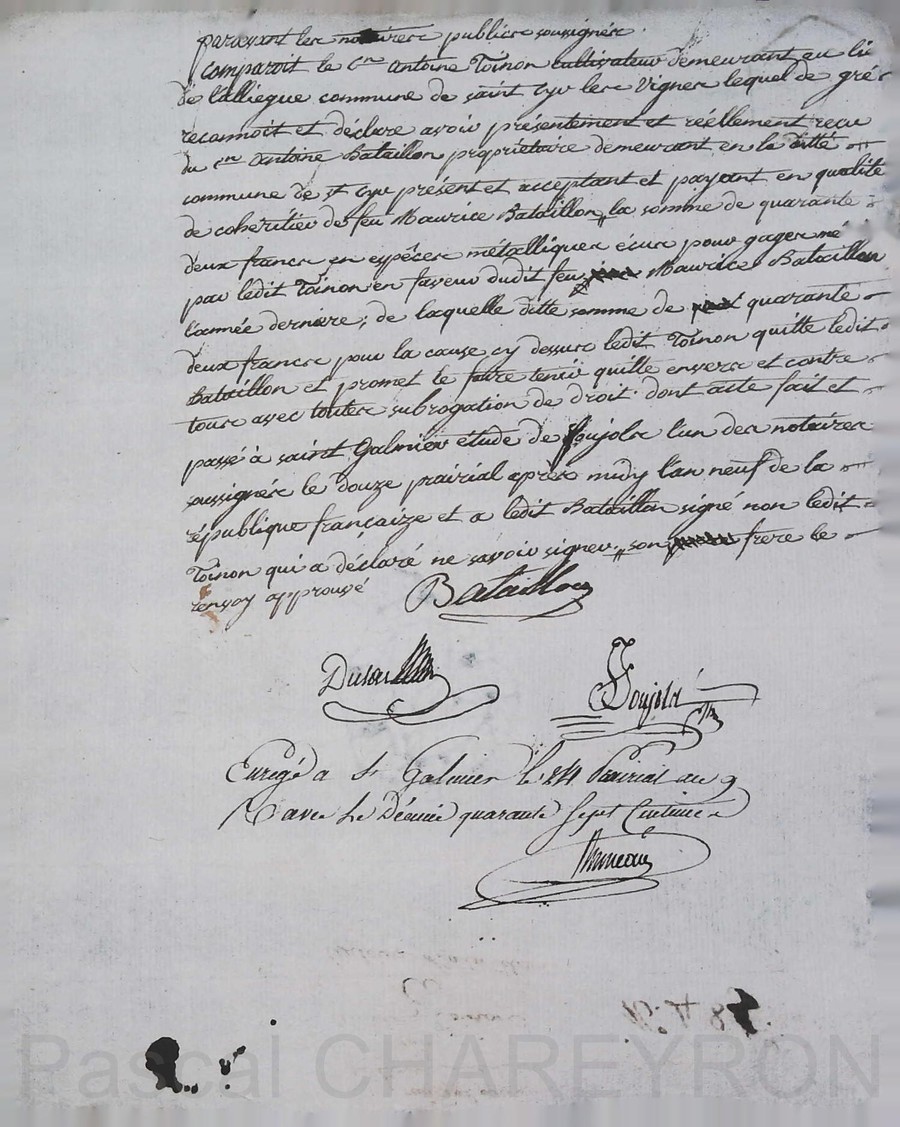 pardevant les notaires publics soussignés
comparoit le Cen Antoine Toinon cultivateur demeurant au li
de lalliegue commune de saint Cyr les Vignes lequel de gré
reconnoit et déclare avoir présentement et réellement reçu
du Cen Antoine Bataillon propriétaire demeurant en la ditte
commune de st Cyr présent et acceptant et payant en qualité
de cohéritier de feu Maurice Bataillon, la somme de quarante
deux francs en espèces métalliques écus pour gages
par ledit Toinon en faveur dudit feu Maurice Bataillon
l'année derniere; de laquelle ditte somme de quarante
deux francs pour la cause cy dessus ledit Toinon quitte ledit
Bataillon et promet le faire tenir quitte envers et contre
tous avec toutes subrogation de droit. dont acte fait et
passé à saint Galmier étude de Poujols l'un des notaires
soussignés le douze prairial après midy l'an neuf de la
république françaize et a ledit Bataillon signé non ledit
Toinon qui a déclaré ne savoir signer, son frere le
renvoy approuvé
Bataillon
Poujols
Enregé a St Galmier le 14 Prairial an 9
avec le Décime quarante Sept Centimes
Pascal CHAREYRON